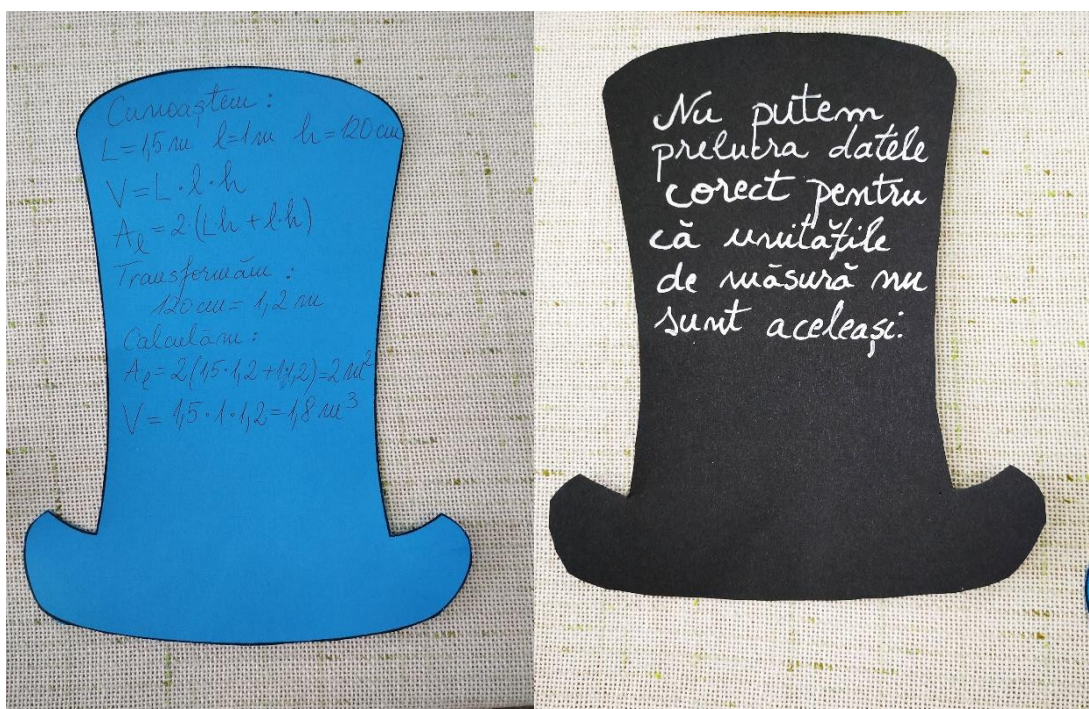 Cunoaștem :
L = 1,5 m l = 1 m h = 120 cm
V = L · l · h
Aℓ = 2·(L·h + l·h)
Transformăm :
120 cm = 1,2 m
Calculăm :
Aℓ = 2(1,5·1,2+1·1,2)=2 m²
V = 1,5·1·1,2=1,8 m³
Nu putem
prelucra datele
corect pentru
că unitățile
de măsură nu
sunt aceleași.